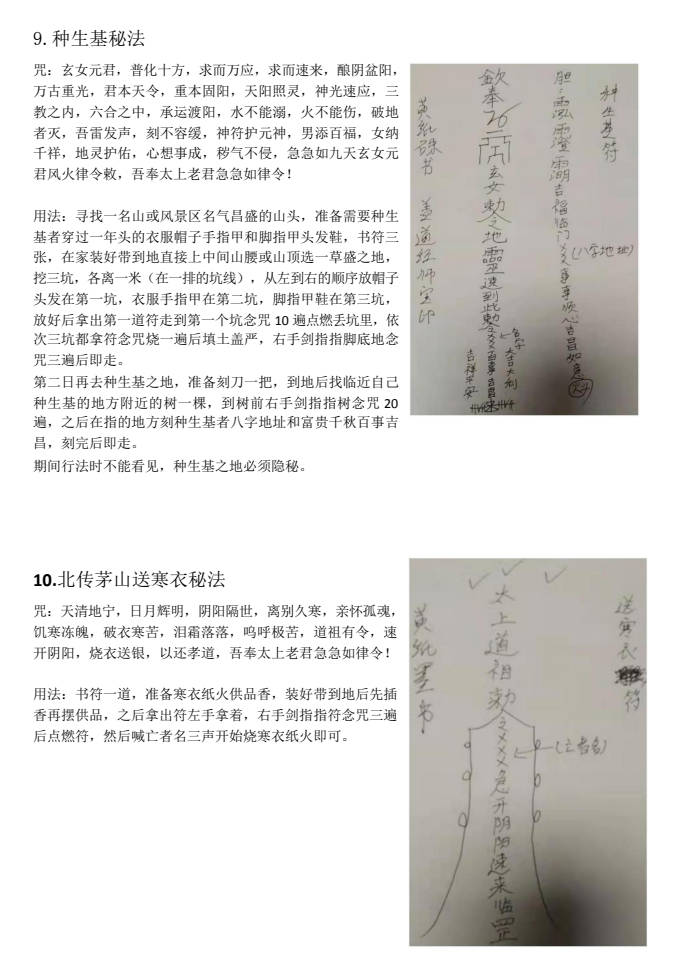 9. 种生基秘法
咒：玄女元君，普化十方，求而万应，求而速来，酿阴盆阳，
万古重光，君本天令，重本固阳，天阳照灵，神光速应，三
教之内，六合之中，承运渡阳，水不能溺，火不能伤，破地
者灭，吾雷发声，刻不容缓，神符护元神，男添百福，女纳
千祥，地灵护佑，心想事成，秽气不侵，急急如九天玄女元
君风火律令敕，吾奉太上老君急急如律令！
用法：寻找一名山或风景区名气昌盛的山头，准备需要种生
基者穿过一年头的衣服帽子手指甲和脚指甲头发鞋，书符三
张，在家装好带到地直接上中间山腰或山顶选一草盛之地，
挖三坑，各离一米（在一排的坑线），从左到右的顺序放帽子
头发在第一坑，衣服手指甲在第二坑，脚指甲鞋在第三坑，
放好后拿出第一道符走到第一个坑念咒 10 遍点燃丢坑里，依
次三坑都拿符念咒烧一遍后填土盖严，右手剑指指脚底地念
咒三遍后即走。
第二日再去种生基之地，准备刻刀一把，到地后找临近自己
种生基的地方附近的树一棵，到树前右手剑指指树念咒 20
遍，之后在指的地方刻种生基者八字地址和富贵千秋百事吉
昌，刻完后即走。
期间行法时不能看见，种生基之地必须隐秘。
种生基符
胆：
吉福临门
事事顺心吉昌如意
(八字地址)
奉
玄女勅令地靈速到此
名字
大吉大利
百事吉昌
吉祥平安
黄纸硃书 盖道经师宝印
10.北传茅山送寒衣秘法
咒：天清地宁，日月辉明，阴阳隔世，离别久寒，亲怀孤魂，
饥寒冻魄，破衣寒苦，泪霜落落，呜呼极苦，道祖有令，速
开阴阳，烧衣送银，以还孝道，吾奉太上老君急急如律令！
用法：书符一道，准备寒衣纸火供品香，装好带到地后先插
香再摆供品，之后拿出符左手拿着，右手剑指指符念咒三遍
后点燃符，然后喊亡者名三声开始烧寒衣纸火即可。
送寒衣符
太上道祖勅令XXX急开阴阳速来临罡
(亡者名)
黄纸墨书